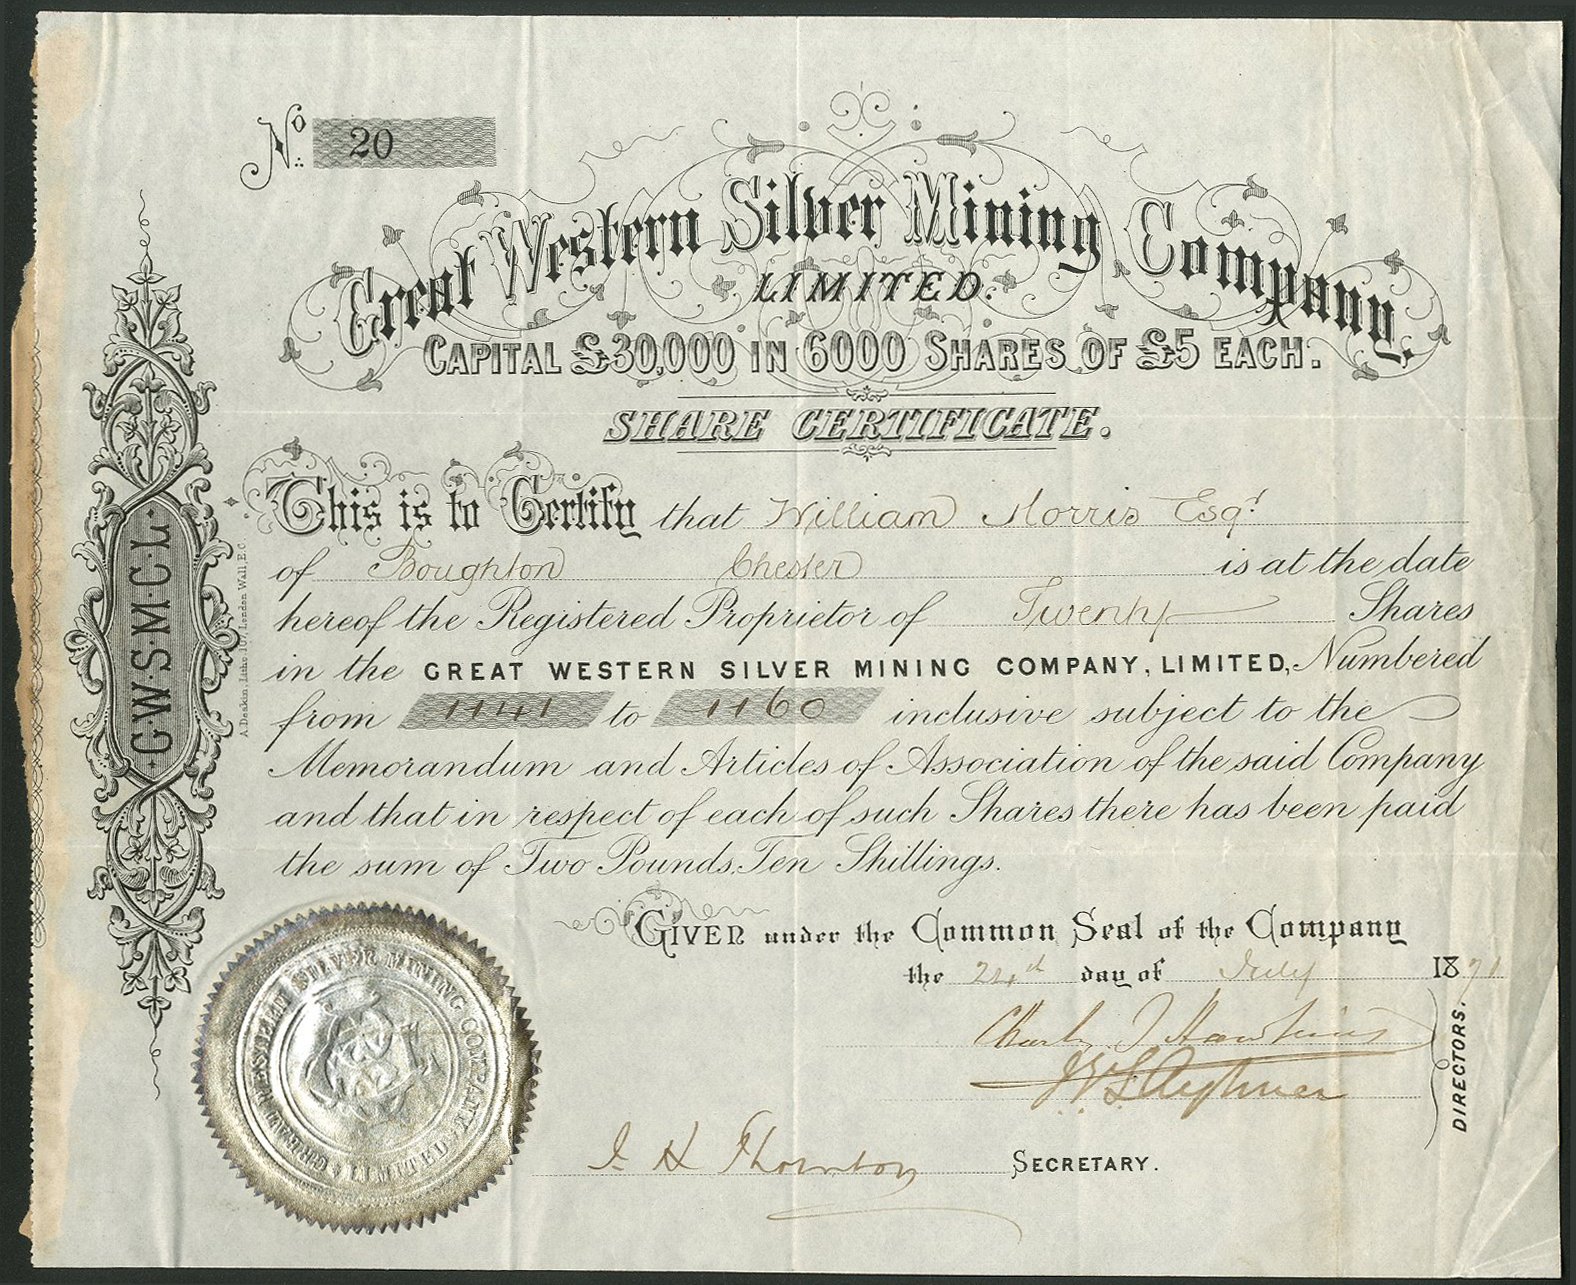 No. 20
Great Western Silver Mining Company.
LIMITED.
CAPITAL £30,000 IN 6000 SHARES OF £5 EACH.
SHARE CERTIFICATE.
This is to Certify that William Morris Esqr
of Boughton Chester is at the date
hereof the Registered Proprietor of Twenty Shares
in the GREAT WESTERN SILVER MINING COMPANY, LIMITED, Numbered
from 1141 to 1160 inclusive subject to the
Memorandum and Articles of Association of the said Company
and that in respect of each of such Shares there has been paid
the sum of Two Pounds, Ten Shillings.
GIVEN under the Common Seal of the Company
the 24th day of July 1871
Charles J Hawkins
DIRECTORS.
J H Thornton SECRETARY.
G.W.S.M.C.L.
A. Deakin, Litho. 107, London Wall, E.C.
GREAT WESTERN SILVER MINING COMPANY
LIMITED